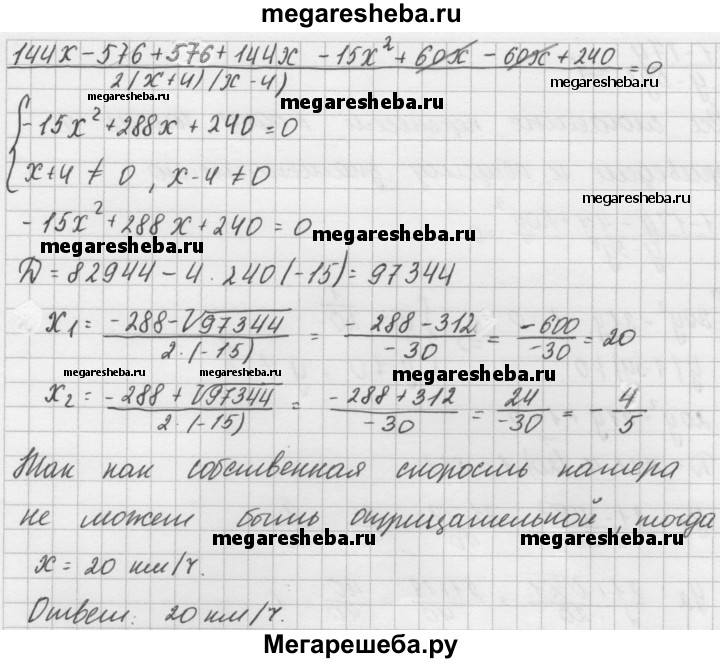 megaresheba.ru
144x - 576 + 576 + 144x - 15x² + 60x - 60x + 240 / 2(x+4)(x-4) = 0
megaresheba.ru
megaresheba.ru
megaresheba.ru
{ -15x² + 288x + 240 = 0
x+4 ≠ 0, x-4 ≠ 0
megaresheba.ru
-15x² + 288x + 240 = 0
megaresheba.ru
megaresheba.ru
D = 82944 - 4 · 240 (-15) = 97344
x₁ = -288 - √97344 / 2·(-15) = -288 - 312 / -30 = -600 / -30 = 20
megaresheba.ru
megaresheba.ru
megaresheba.ru
x₂ = -288 + √97344 / 2·(-15) = -288 + 312 / -30 = 24 / -30 = - 4/5
Так как собственная скорость катера
не может быть отрицательной, тогда
megaresheba.ru
megaresheba.ru
x = 20 км/ч.
Ответ: 20 км/ч.
Мегарешеба.ру